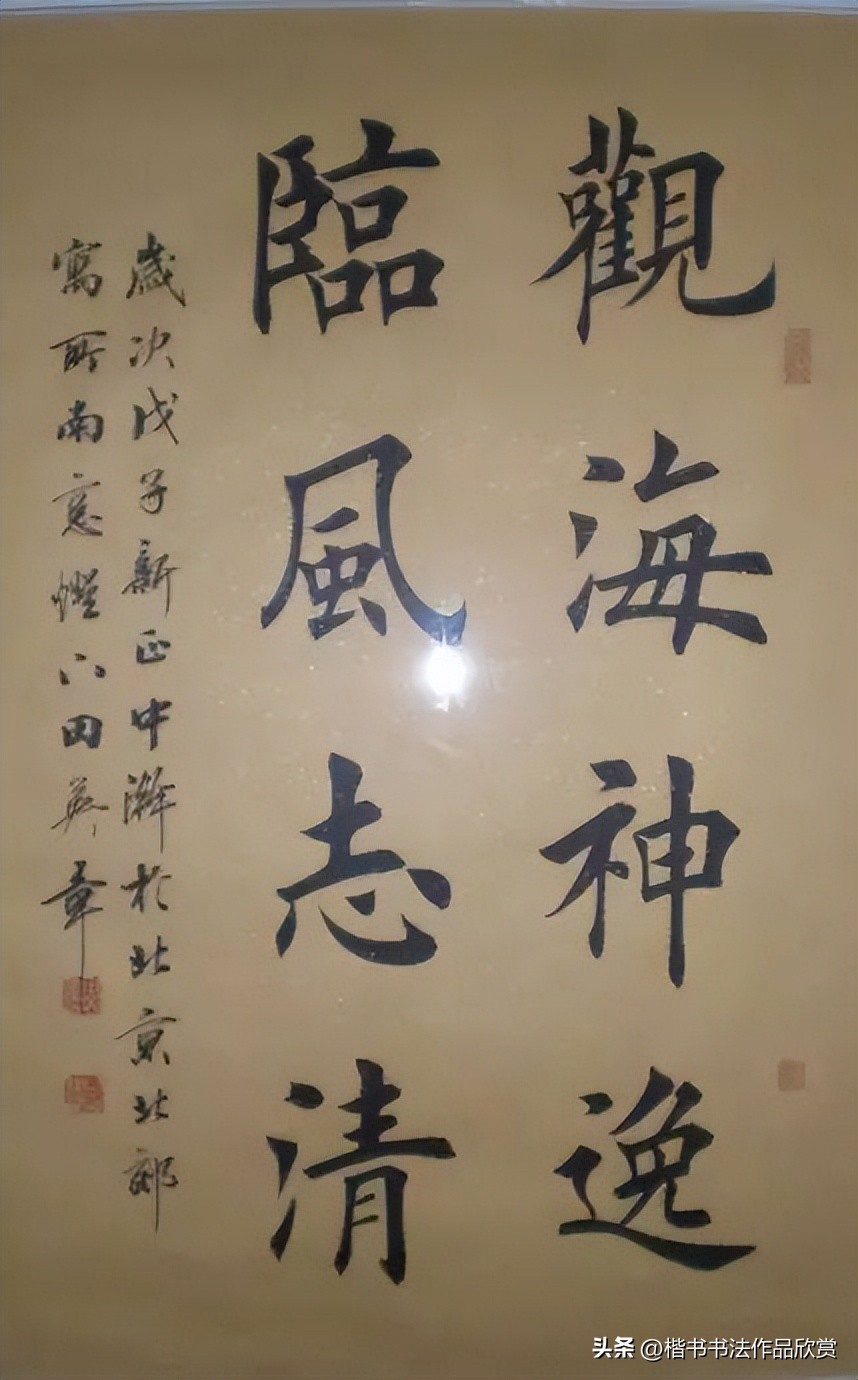 觀海神逸
臨風志清
歲次戊子新正中澣於北京北郊
寓所南窓燈下田英章
头条 @楷书书法作品欣赏